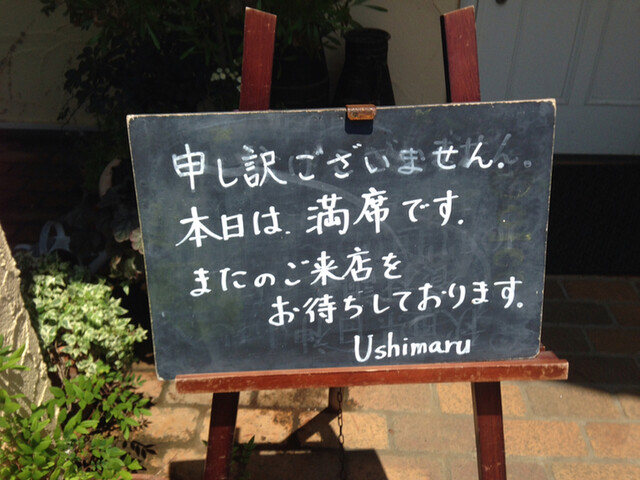 申し訳ございません。
本日は、満席です。
またのご来店を
お待ちしております。
Ushimaru